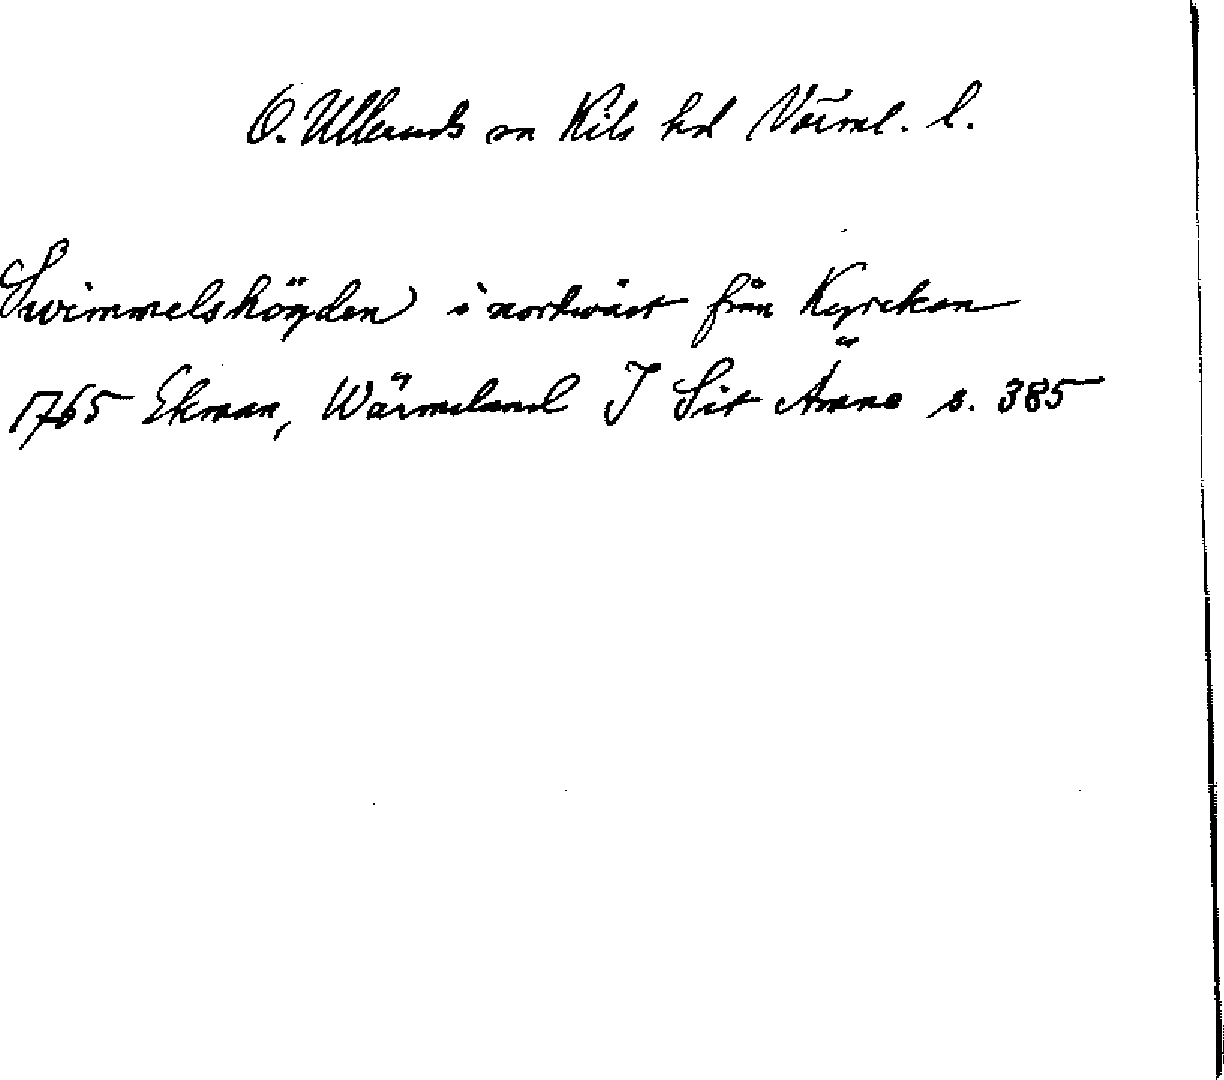 Ö. Ulleruds sn Kils hd Värml. l.
Swimmelshögden i nordwäst från Kyrckan
1765 Ekman, Wärmeland I Sit Ämne s. 385